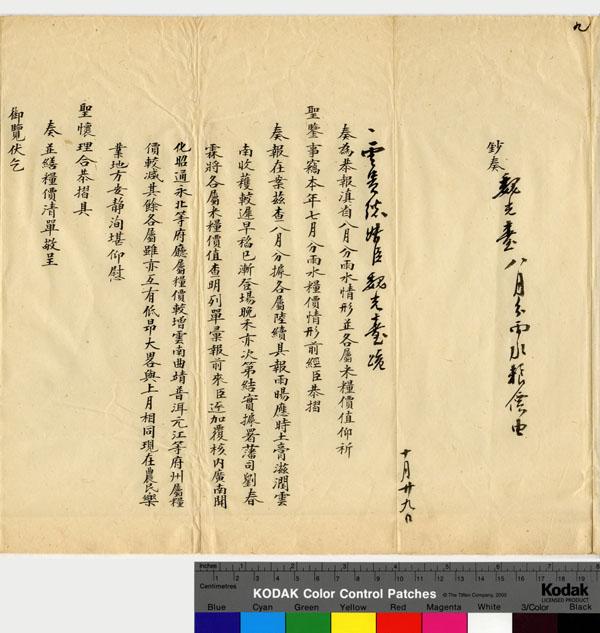 九
鈔奏
魏光燾八月分雨水糧價由
十月廿九日
雲貴總督臣魏光燾跪
奏為恭報滇省八月分雨水情形並各屬米糧價值仰祈
聖鑒事竊本年七月分雨水糧價情形前經臣恭摺
奏報在案茲查八月分據各屬陸續具報雨暘應時土膏滋潤雲
南收穫較遲早稻已漸登場晚禾亦次第結實據署藩司劉春
霖將各屬米糧價值查明列單彙報前來臣逐加覆核內廣南開
化昭通永北等府廳屬糧價較增雲南曲靖普洱元江等府州屬糧
價較減其餘各屬雖亦互有低昂大畧與上月相同現在農民樂
業地方安靜洵堪仰慰
聖懷理合恭摺具
奏並繕糧價清單敬呈
御覽伏乞
inches 1 2 3 4 5 6 7 8
Centimetres 1 2 3 4 5 6 7 8 9 10 11 12 13 14 15 16 17 18 19
KODAK Color Control Patches © The Tiffen Company, 2000 Kodak
LICENSED PRODUCT
Blue Cyan Green Yellow Red Magenta White 3/Color Black